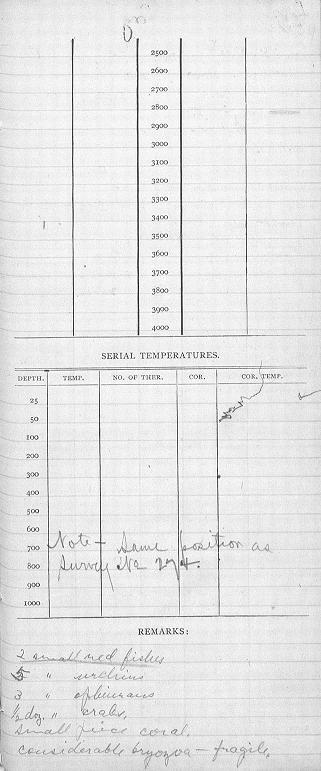 2500
2600
2700
2800
2900
3000
3100
3200
3300
3400
3500
3600
3700
3800
3900
4000
SERIAL TEMPERATURES.
DEPTH. TEMP. NO. OF THER. COR. COR. TEMP.
25
50
100
200
300
400
500
600
700
800
900
1000
Note - Same position as
Survey No 274.
REMARKS:
2 small red fishes
5 " urchins
3 " ophiurans
½ doz. " crabs,
small piece coral,
considerable bryozoa - fragile,